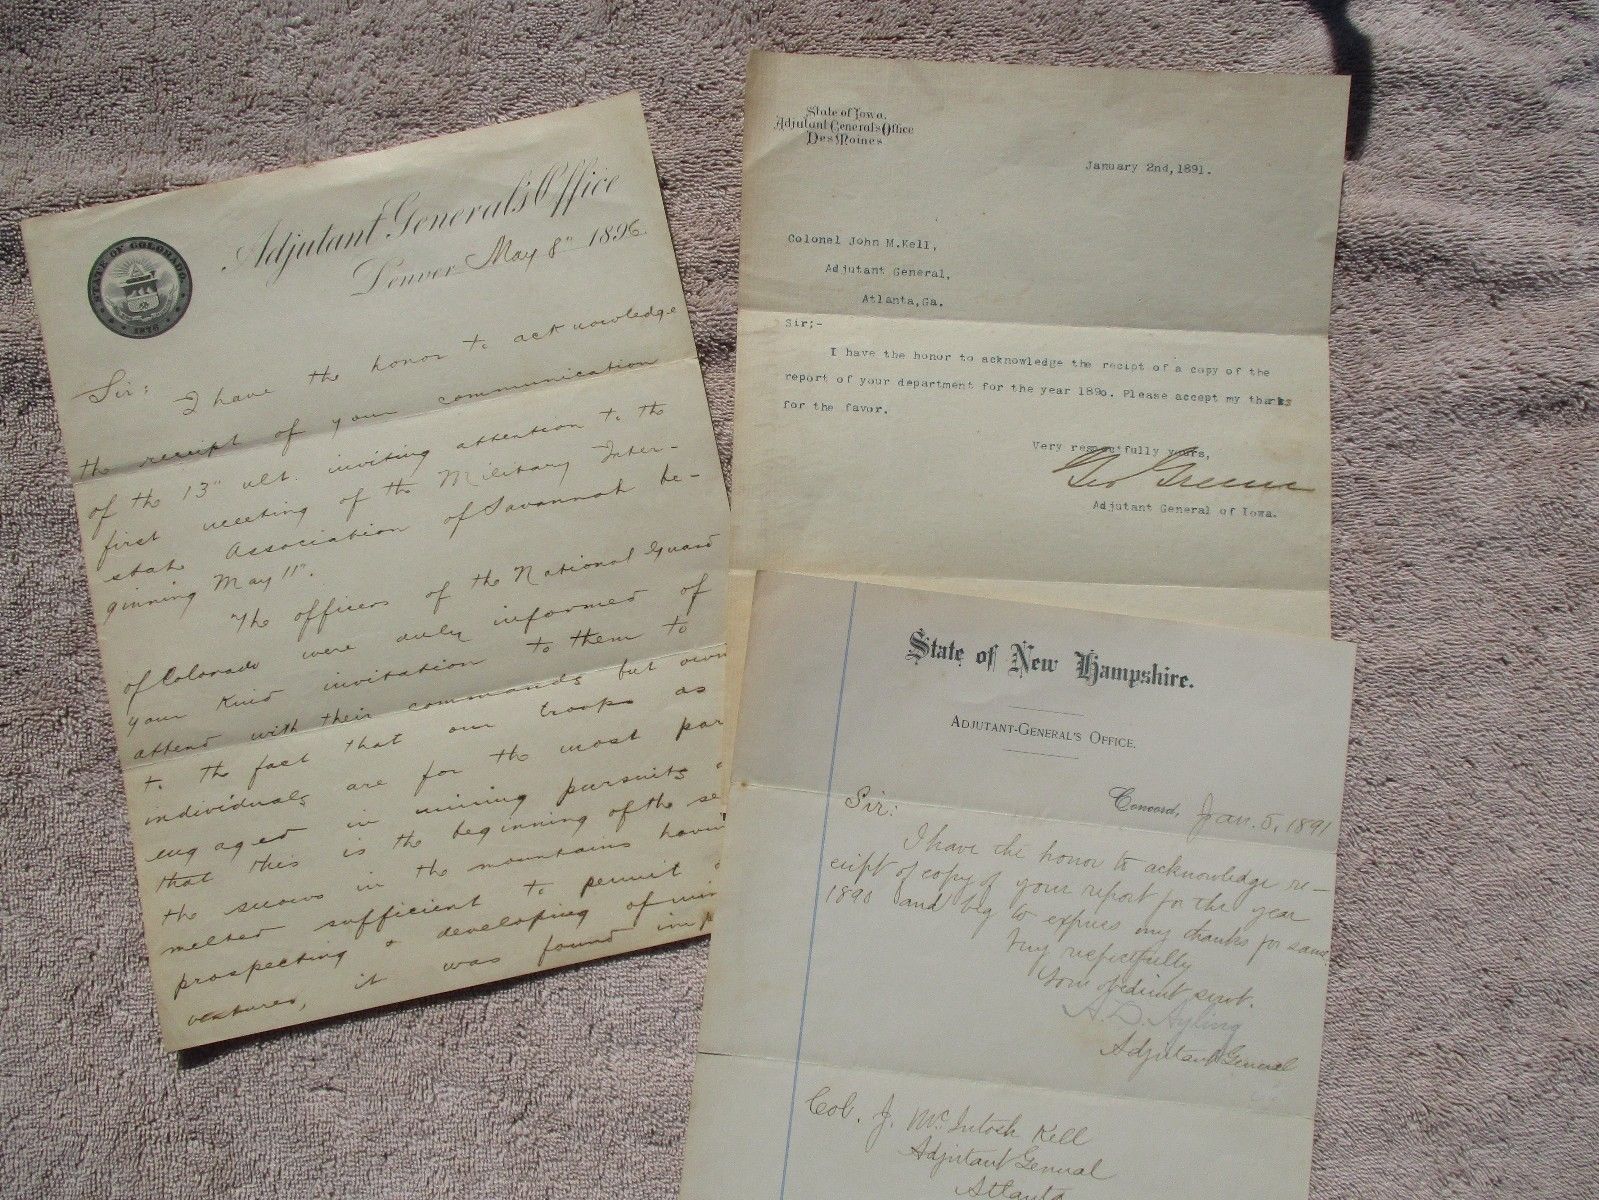 STATE OF COLORADO
1876
Adjutant General's Office
Denver May 8" 1896.
Sir:
I have the honor to acknowledge
the receipt of your communication
of the 13" ult. inviting attention to the
first meeting of the Military Inter-
state Association of Savannah be-
ginning May 11".
The officers of the National Guard
of Colorado were duly informed of
your kind invitation to them to
attend with their commands but owin
to the fact that our troops as
individuals are for the most par
engaged in mining pursuits
that this is the beginning of the se
the snows in the mountains havin
melted sufficient to permit
prospecting & developing of min
ventures, it was found imp
State of Iowa.
Adjutant General's Office
Des Moines
January 2nd,1891.
Colonel John M.Kell,
Adjutant General,
Atlanta,Ga.
Sir;-
I have the honor to acknowledge the recipt of a copy of the
report of your department for the year 1890. Please accept my thanks
for the favor.
Very respectfully yours,
Geo Greene
Adjutant General of Iowa.
State of New Hampshire.
ADJUTANT-GENERAL'S OFFICE.
Concord, Jan. 5, 1891
Sir:
I have the honor to acknowledge re-
ceipt of copy of your report for the year
1890 and beg to express my thanks for same
Very respectfully
Your obedient servt.
A. D. Ayling
Adjutant General
Col. J. McIntosh Kell
Adjutant General
Atlanta